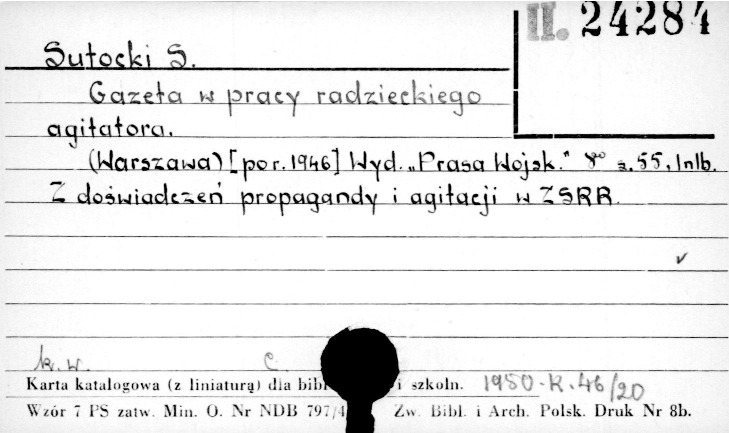 II. 24284
Sutocki S.
Gazeta w pracy radzieckiego
agitatora.
(Warszawa) [por. 1946] Wyd. „Prasa Wojsk." 8° s. 55, 1 nlb.
Z doświadczeń propagandy i agitacji w ZSRR
k. w. C.
Karta katalogowa (z liniaturą) dla bibl i szkoln. 1950·K·46/20
Wzór 7 PS zatw. Min. O. Nr NDB 797/4 Zw. Bibl. i Arch. Polsk. Druk Nr 8b.